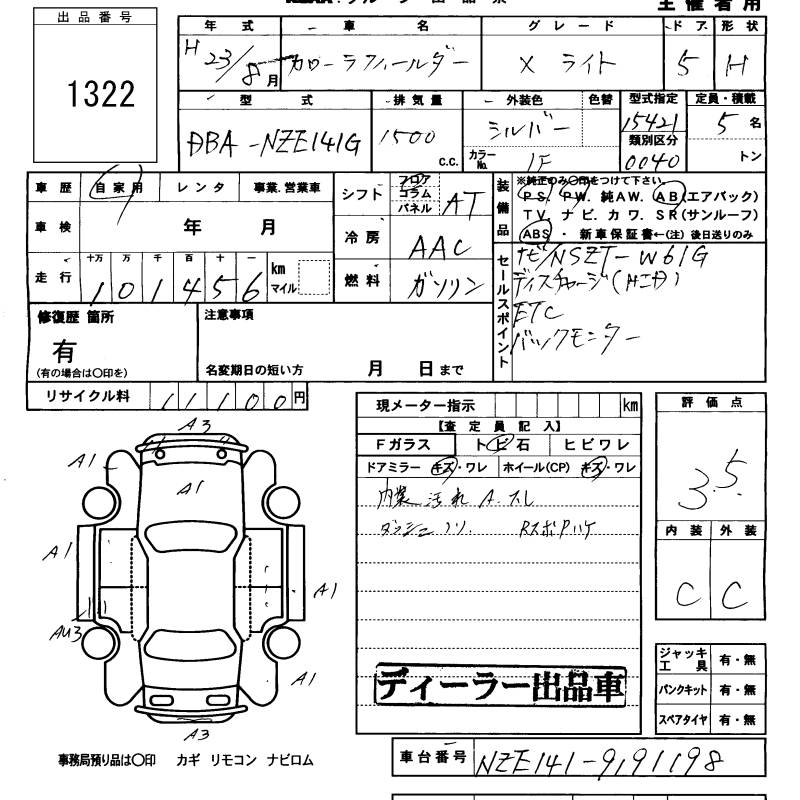 主催者用
出品番号
1322
年式 車名 グレード ドア 形状
H23/8月 カローラフィールダー X ライト 5 H
型式 排気量 外装色 色替 型式指定 定員・積載
DBA-NZE141G 1500 c.c. シルバー 15421 5名
類別区分
カラーNo. 1F 0040 トン
車歴 自家用 レンタ 事業.営業車
シフト フロア コラム パネル AT
車検 年 月
冷房 AAC
走行 十万 万 千 百 十 一
101456 km マイル
燃料 ガソリン
装備品 ※純正のみ○印をつけて下さい。
PS. PW. 純AW. AB(エアバック)
TV. ナビ. カワ. SR(サンルーフ)
ABS ・ 新車保証書←(注) 後日送りのみ
セールスポイント
ナビ/NSZT-W61G
ディスチャージ(HID)
ETC
バックモニター
修復歴 箇所
有
(有の場合は○印を)
注意事項
名変期日の短い方 月 日まで
リサイクル料 11100円
現メーター指示 km
【査定員記入】
Fガラス トビ石 ヒビワレ
ドアミラー キズ・ワレ ホイール(CP) キズ・ワレ
内装 汚れ A.スレ
ダッシュノリ RスポPハゲ
評価点
3.5
内装 外装
C C
A3
A1
A1
A1
A1
AU3
A1
A3
ディーラー出品車
ジャッキ工具 有・無
パンクキット 有・無
スペアタイヤ 有・無
事務局預り品は○印 カギ リモコン ナビロム
車台番号 NZE141-9191198